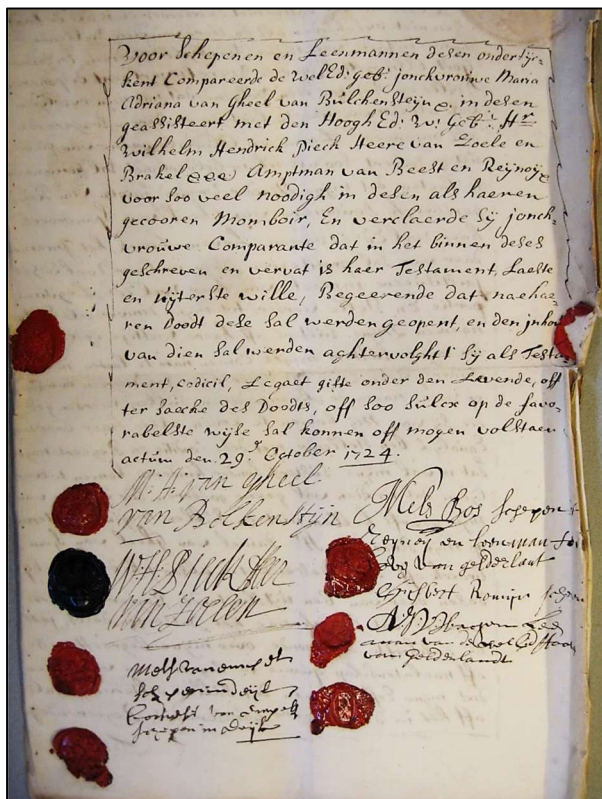 Voor Schepenen en Leenmannen desen ondertÿc-
kent Compareerde de WelEd: geb: jonckvrouwe Maria
Adriana van Gheel van Bulchensteÿn, in desen
geassisteert met den Hoogh Ed: W: Geb: Hr
Wilhelm Hendrick Pieck Heere van Zoele en
Brakel Amptman van Beest en Reÿnoÿ
voor soo veel noodigh in desen als haeren
gecooren Momboir, En verclaerde sÿ jonck-
vrouwe Comparante dat in het binnen deses
geschreven en vervat is haer Testament, Laeste
en uÿterste wille, Begeerende dat nae hae-
ren Doodt dese sal werden geopent, en den inhou
van dien sal werden achtervolght 't sÿ als Testa-
ment, codicil, Legaet gifte onder den Levende, off
ter saecke des Doodts, off soo sulcx op de favo-
rabelste wijse sal konnen off mogen volstaen
actum den 29 October 1724.
M: A: van gheel
van Bolkenstijn
Mels Bos schepen
en leenman
van gelderlant
WH Pieck Heer
van Zoelen
Romijn
van Gelderlandt
Mels van
schepen in
van
schepen in